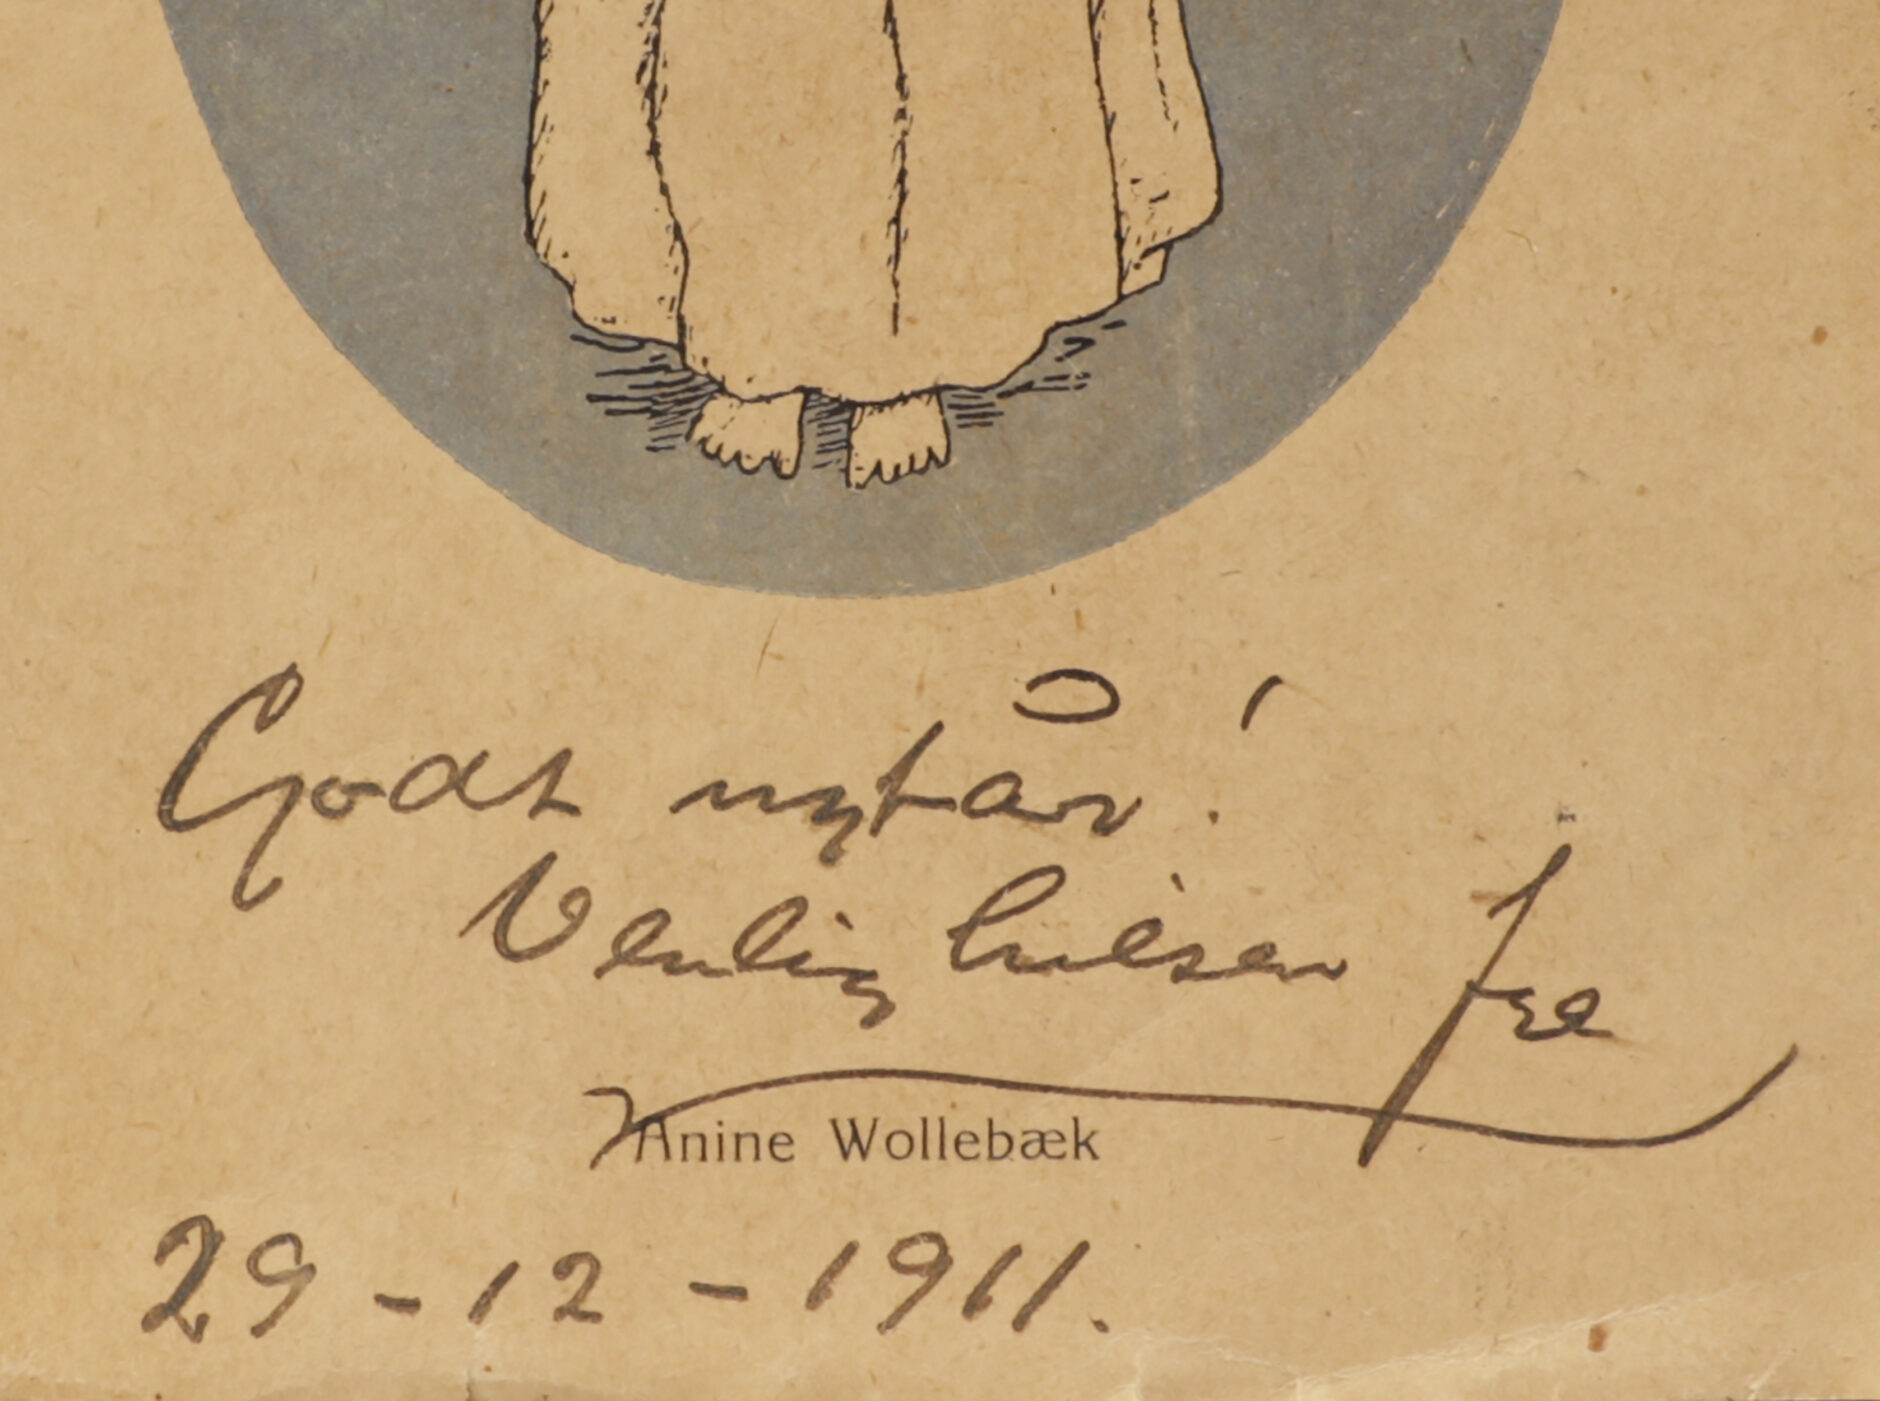 Godt nytår!
Venlig hilsen fra
Anine Wollebæk
29-12-1911.